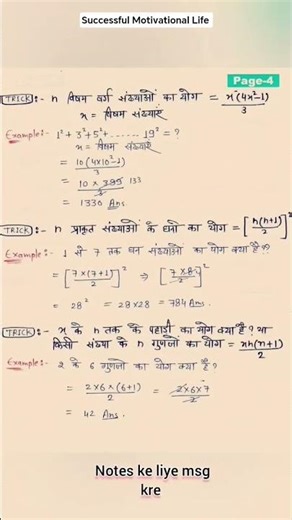 Successful Motivational Life
Page-4
TRICK :- n विषम वर्ग संख्याओं का योग = x(4x²-1)/3
x = विषम संख्याएं
Example:- 1² + 3² + 5² + ...... 19² = ?
x = विषम संख्याएं
= 10(4×10²-1)/3
= 10 × 399/3 133
= 1330 Ans.
TRICK :- n प्राकृत संख्याओं के घनो का योग = [n(n+1)/2]²
Example:- 1 से 7 तक घन संख्याओं का योग क्या है??
= [7×(7+1)/2]² ⇒ [7×8/2]²
= 28² = 28×28 = 784 Ans.
TRICK :- x के n तक के पहाड़ों का योग क्या है? या
किसी संख्या के n गुणजों का योग = xn(n+1)/2
Example:- 2 के 6 गुणजों का योग क्या है?
= 2×6×(6+1)/2 = 2×6×7/2
= 42 Ans.
Notes ke liye msg
kre